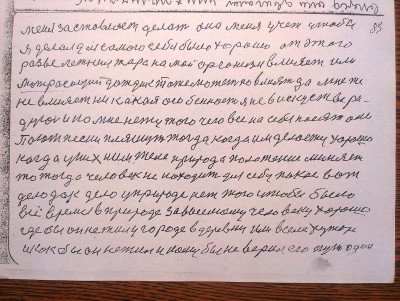 83
меня заставляет делат она меня учеть чтоби
я делал для самого себя било хорошо от этого
разве летним жара на мой организм влияет или
мотрасющий дождик тоже может влият да мне ни
не влияет ни какой особенност я не в искустве ро-
дился и по мне нету того чево все на себя носят они
Поют песни пляшут тогда когда им делается хорошо
когда у них в ихи теле природа положение меняет
то тогда человек не находит для себя покое вот
дело дак дело у природе нет этого чтоби било
всё время в природе зависимому человеку хорошо
где би он не жил у городе в деревни или в селе хуторе
и как би он не жил и кому би не верил его путь один